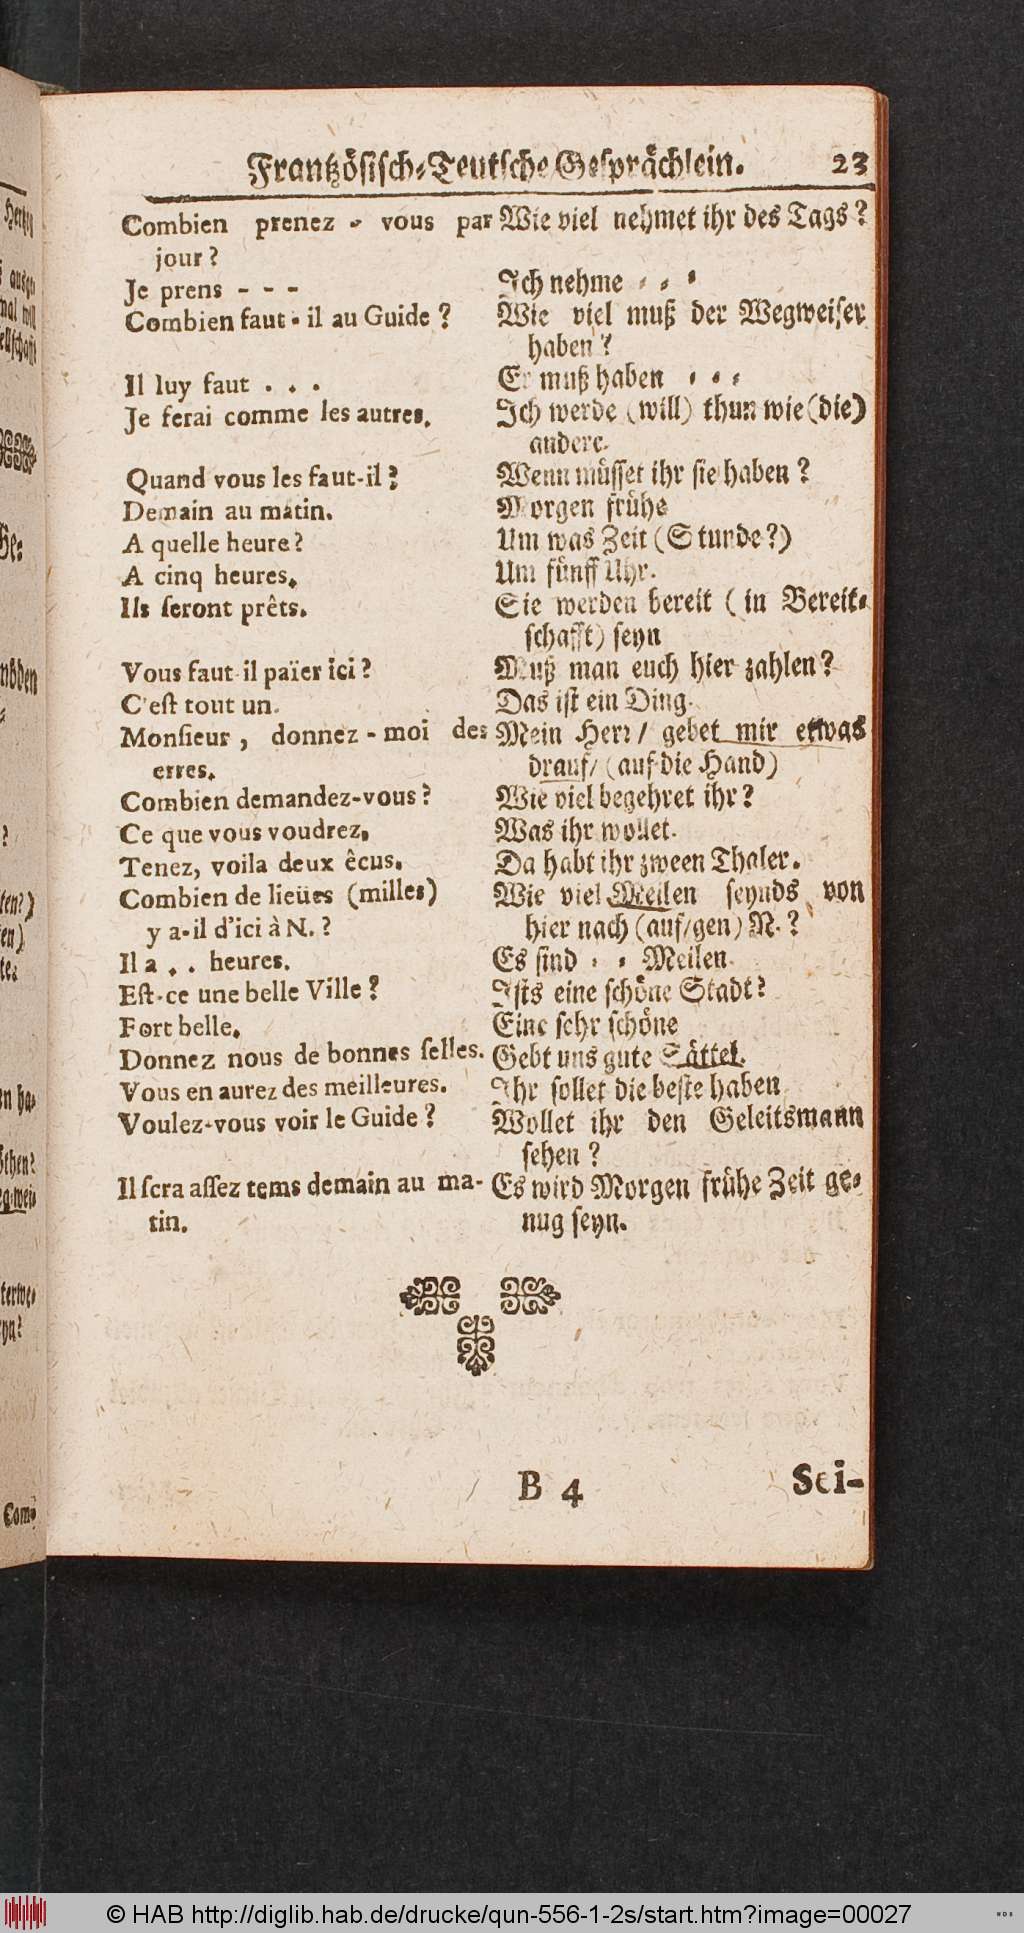 Frantzösisch-Teutsche Gesprächlein. 23
Combien prenez - vous par
jour?
Je prens - - -
Combien faut-il au Guide?
Il luy faut . . .
Je ferai comme les autres.
Quand vous les faut-il?
Demain au matin.
A quelle heure?
A cinq heures.
Ils seront prêts.
Vous faut-il païer ici?
C'est tout un.
Monsieur, donnez-moi des
erres.
Combien demandez-vous?
Ce que vous voudrez.
Tenez, voila deux êcus.
Combien de lieües (milles)
y a-il d'ici à N.?
Il a . . heures.
Est-ce une belle Ville?
Fort belle.
Donnez nous de bonnes selles.
Vous en aurez des meilleures.
Voulez-vous voir le Guide?
Il sera assez tems demain au ma-
tin.
Wie viel nehmet ihr des Tags?
Ich nehme - - -
Wie viel muß der Wegweiser
haben?
Er muß haben - - -
Ich werde (will) thun wie (die)
andere.
Wenn müsset ihr sie haben?
Morgen frühe
Um was Zeit (Stunde?)
Um fünff Uhr.
Sie werden bereit (in Bereit-
schafft) seyn
Muß man euch hier zahlen?
Das ist ein Ding.
Mein Herr/ gebet mir etwas
drauf/ (auf die Hand)
Wie viel begehret ihr?
Was ihr wollet.
Da habt ihr zween Thaler.
Wie viel Meilen seynds von
hier nach (auf/gen) N.?
Es sind - - Meilen.
Ists eine schöne Stadt?
Eine sehr schöne
Gebt uns gute Sättel.
Ihr sollet die beste haben
Wollet ihr den Geleitsmann
sehen?
Es wird Morgen frühe Zeit ge-
nug seyn.
B 4 Sei-
© HAB http://diglib.hab.de/drucke/qun-556-1-2s/start.htm?image=00027